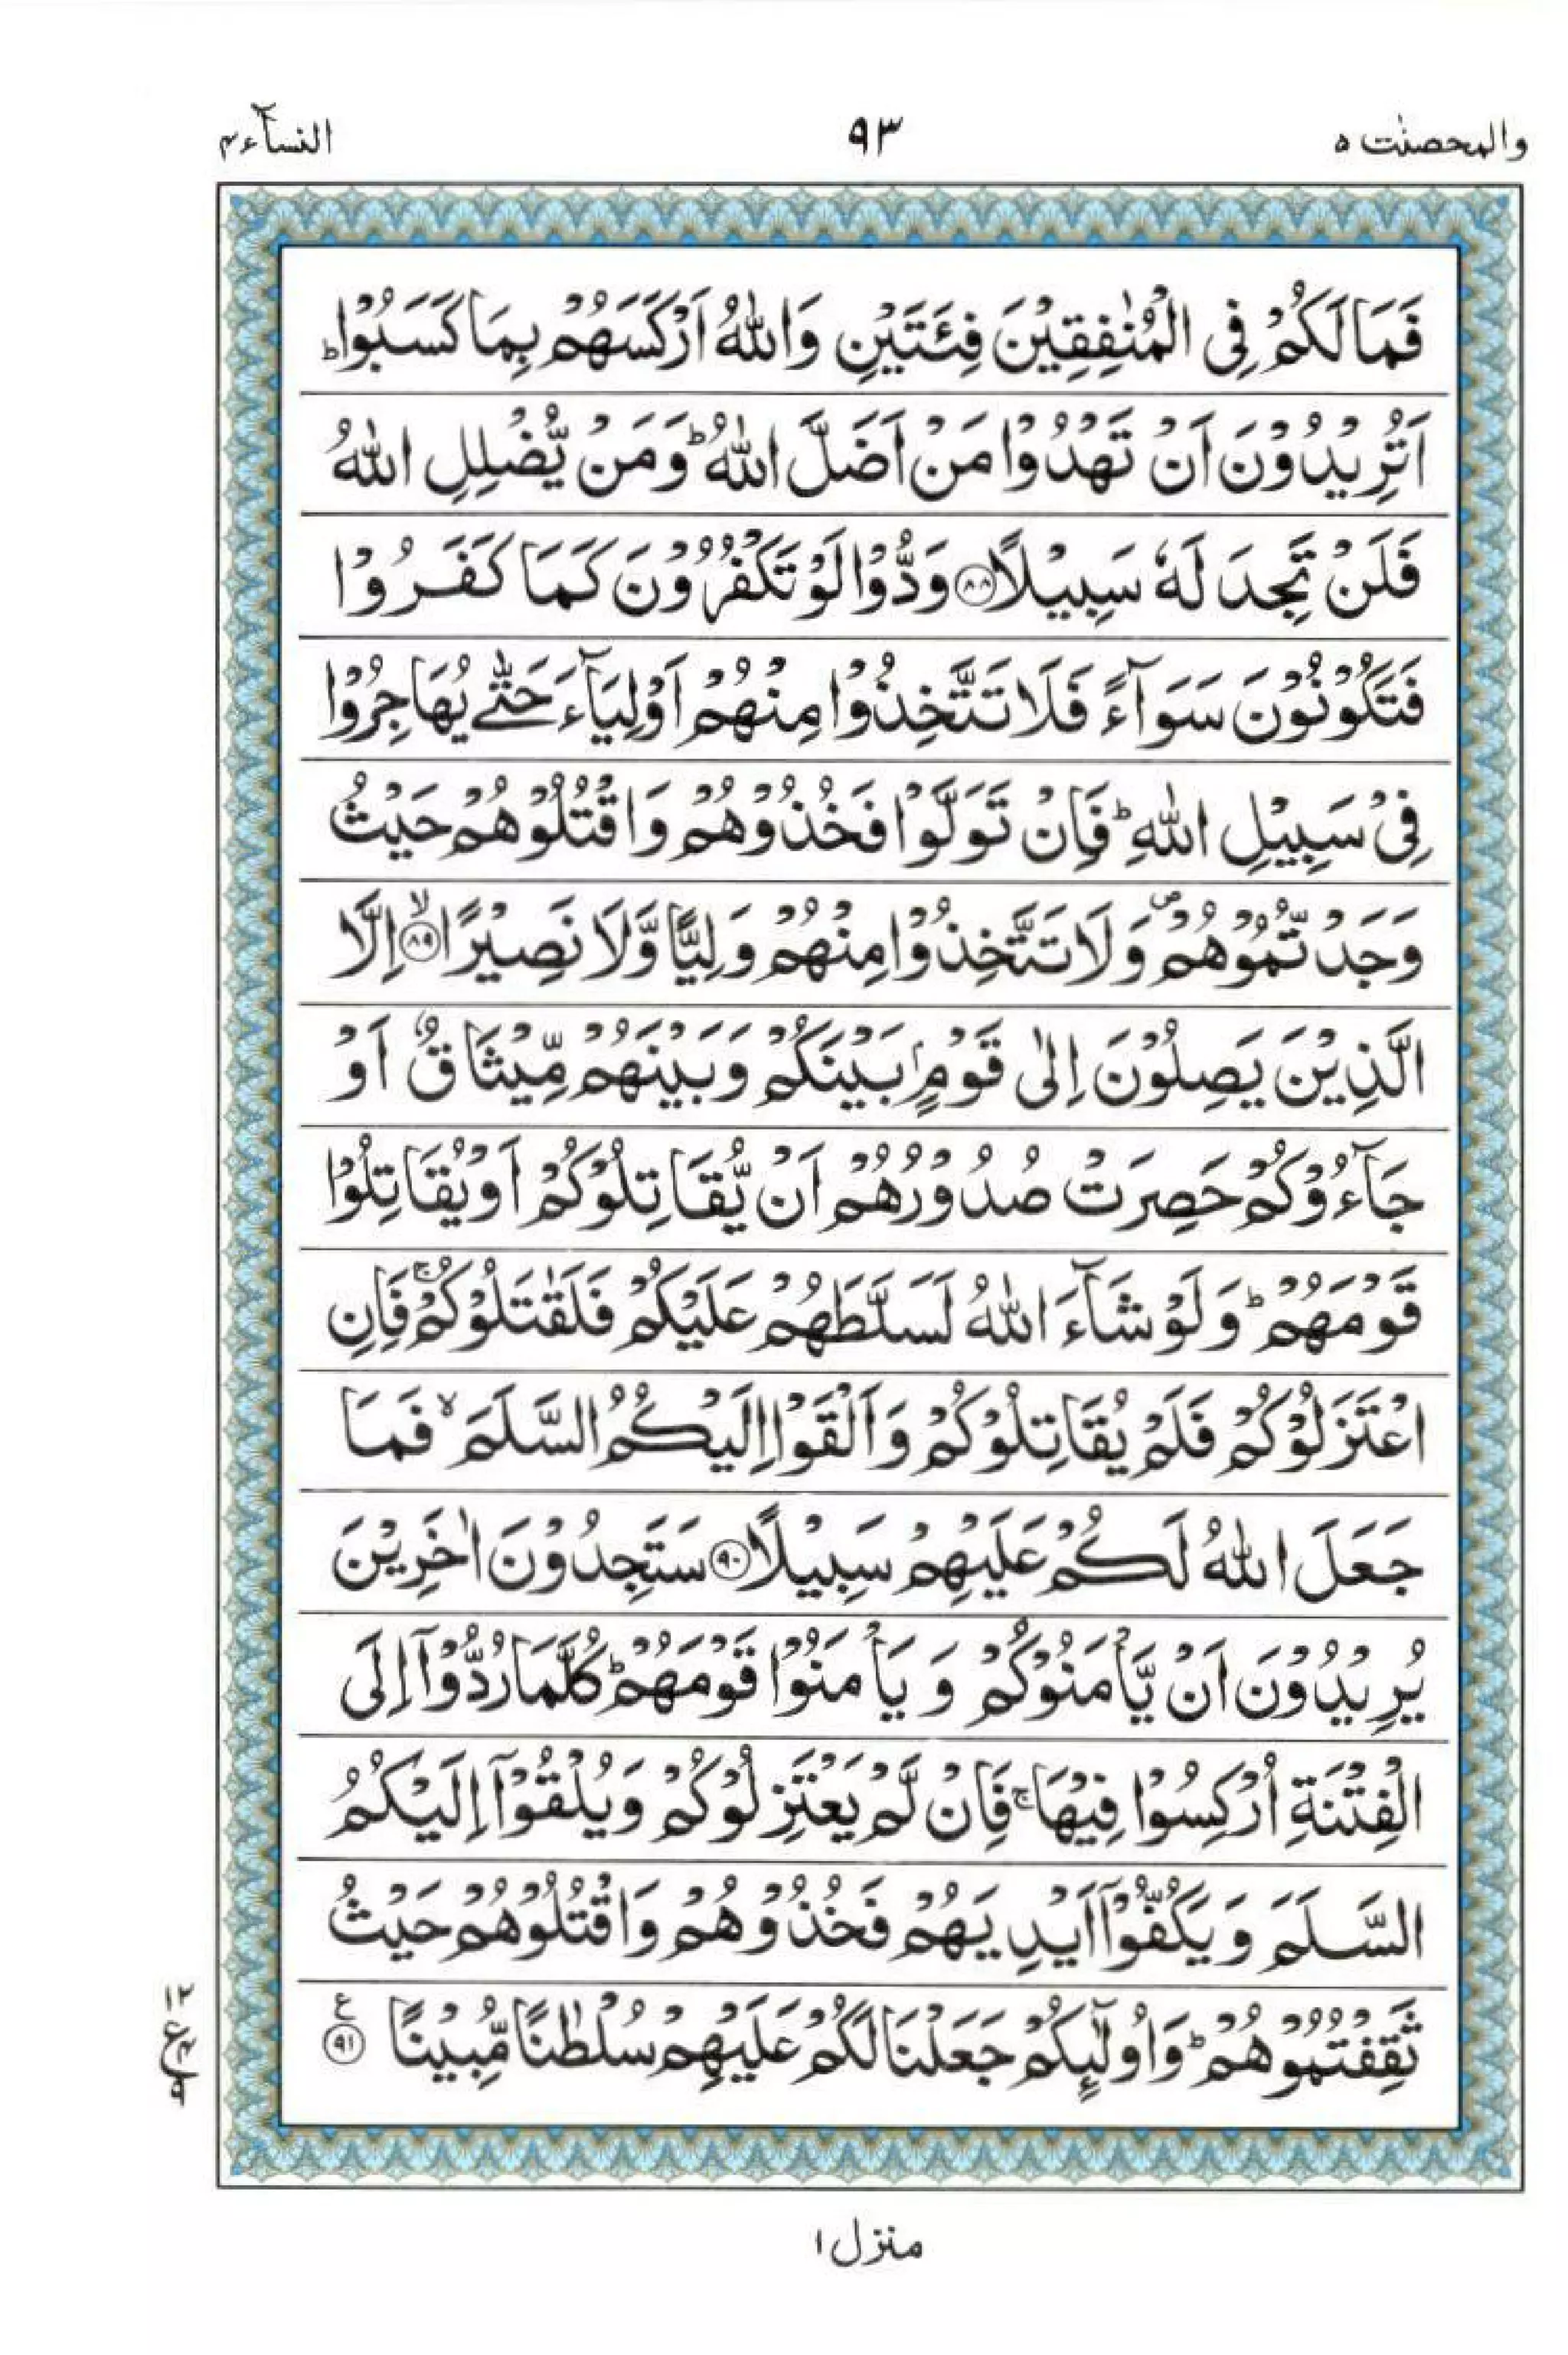 والمحصنٰت ۵ ۹۳ النسآء ۴
فَمَا لَكُمْ فِى الْمُنٰفِقِيْنَ فِئَتَيْنِ وَاللّٰهُ اَرْكَسَهُمْ بِمَا كَسَبُوْا ؕ
اَتُرِيْدُوْنَ اَنْ تَهْدُوْا مَنْ اَضَلَّ اللّٰهُ ؕ وَمَنْ يُّضْلِلِ اللّٰهُ
فَلَنْ تَجِدَ لَهٗ سَبِيْلًا ﴿۸۸﴾ وَدُّوْا لَوْ تَكْفُرُوْنَ كَمَا كَفَرُوْا
فَتَكُوْنُوْنَ سَوَآءً فَلَا تَتَّخِذُوْا مِنْهُمْ اَوْلِيَآءَ حَتّٰى يُهَاجِرُوْا
فِىْ سَبِيْلِ اللّٰهِ ؕ فَاِنْ تَوَلَّوْا فَخُذُوْهُمْ وَاقْتُلُوْهُمْ حَيْثُ
وَجَدْتُّمُوْهُمْ ۪ وَلَا تَتَّخِذُوْا مِنْهُمْ وَلِيًّا وَّلَا نَصِيْرًا ۙ﴿۸۹﴾ اِلَّا
الَّذِيْنَ يَصِلُوْنَ اِلٰى قَوْمٍۭ بَيْنَكُمْ وَبَيْنَهُمْ مِّيْثَاقٌ اَوْ
جَآءُوْكُمْ حَصِرَتْ صُدُوْرُهُمْ اَنْ يُّقَاتِلُوْكُمْ اَوْ يُقَاتِلُوْا
قَوْمَهُمْ ؕ وَلَوْ شَآءَ اللّٰهُ لَسَلَّطَهُمْ عَلَيْكُمْ فَلَقٰتَلُوْكُمْ ۚ فَاِنِ
اعْتَزَلُوْكُمْ فَلَمْ يُقَاتِلُوْكُمْ وَاَلْقَوْا اِلَيْكُمُ السَّلَمَ ۙ فَمَا
جَعَلَ اللّٰهُ لَكُمْ عَلَيْهِمْ سَبِيْلًا ﴿۹۰﴾ سَتَجِدُوْنَ اٰخَرِيْنَ
يُرِيْدُوْنَ اَنْ يَّاْمَنُوْكُمْ وَيَاْمَنُوْا قَوْمَهُمْ ؕ كُلَّمَا رُدُّوْۤا اِلَى
الْفِتْنَةِ اُرْكِسُوْا فِيْهَا ۚ فَاِنْ لَّمْ يَعْتَزِلُوْكُمْ وَيُلْقُوْۤا اِلَيْكُمُ
السَّلَمَ وَيَكُفُّوْۤا اَيْدِيَهُمْ فَخُذُوْهُمْ وَاقْتُلُوْهُمْ حَيْثُ
ثَقِفْتُمُوْهُمْ ؕ وَاُولٰٓئِكُمْ جَعَلْنَا لَكُمْ عَلَيْهِمْ سُلْطٰنًا مُّبِيْنًا ﴿۹۱﴾ ع
۱۲
ع ۴
۹
منزل ۱